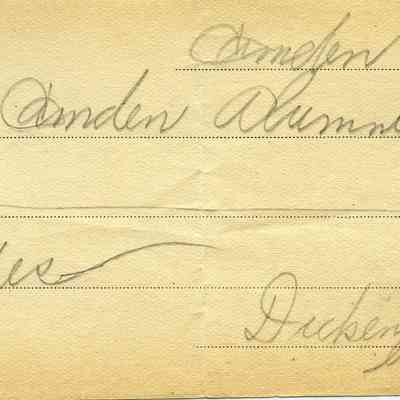 Camden
Camden Alumni
es
Dicken